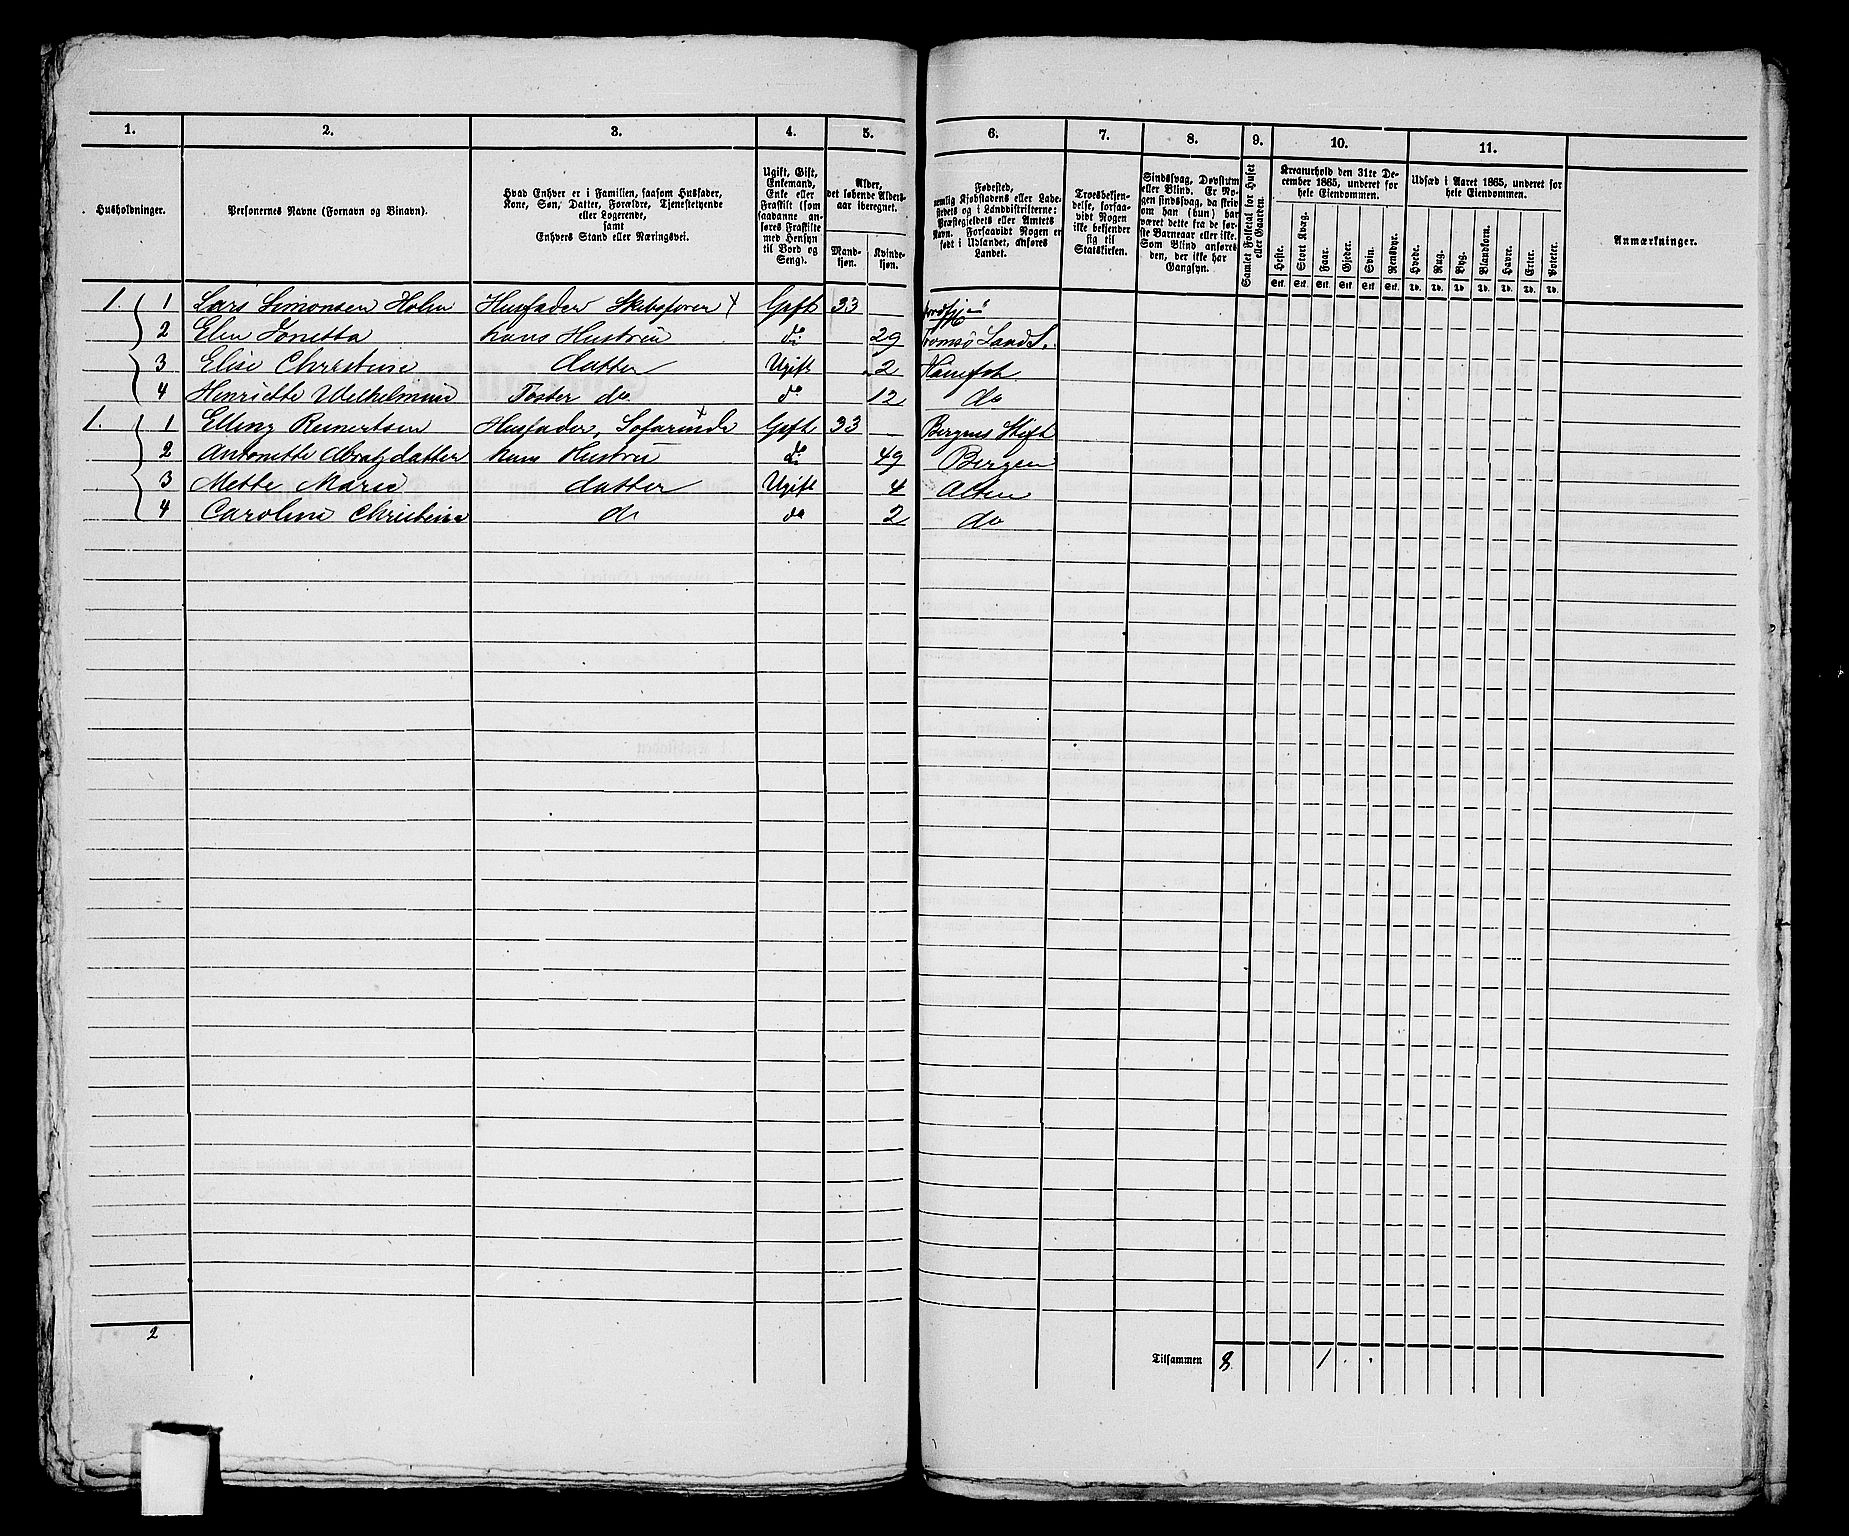 1. 2. 3. 4. 5. 6. 7. 8. 9. 10. 11.
Husholdninger.
Personernes Navne (Fornavn og Binavn).
Hvad Enhver er i Familien, saasom Husfader,
Kone, Søn, Datter, Forældre, Tjenestetyende
eller Logerende,
samt
Enhvers Stand eller Næringsvei.
Ugift, Gift,
Enkemand,
Enke eller
Fraskilt (som
saadanne an-
føres Fraskilte
med Hensyn
til Bord og
Seng).
Alder,
det løbende Alders-
aar iberegnet.
Mand-
kjøn.
Kvinde-
kjøn.
Fødested,
nemlig Kjøbstadens eller Lade-
stedets og i Landdistrikterne:
Præstegjeldets eller Amtets
Navn. Forsaavidt Nogen er
født i Udlandet, anføres
Landet.
Troesbekjen-
delse, forsaa-
vidt Nogen
ikke bekjender
sig til
Statskirken.
Sindssvag, Døvstum
eller Blind. Er No-
gen sindssvag, da skriv
om han (hun) har
været dette fra de før-
ste Barneaar eller ikke.
Som Blind anføres
den, der ikke har
Gangsyn.
Samlet Folketal for Huset
eller Gaarden.
Kreaturhold den 31te De-
cember 1865, underet for
hele Eiendommen.
Heste. Stort Kvæg. Faar. Gjeder. Svin. Rensdyr.
Stk. Stk. Stk. Stk. Stk. Stk.
Udsæd i Aaret 1865, underet for
hele Eiendommen.
Hvede. Rug. Byg. Blandkorn. Havre. Erter. Poteter.
Td. Td. Td. Td. Td. Td. Td.
Anmærkninger.
1. 1 Lars Simonsen Holm Husfader Skibsfører x Gift 33
2 Elen Jonetta hans Hustru do 29 Tromsø Lands.
3 Elise Christine datter Ugift 2
4 Henriette Wilhelmine Foster do do 12 do
1. 1 Elling Reinertsen Husfader, Søfarende x Gift 33 Bergens Stift
2 Antonette hans Hustru do 49 Bergen
3 Mette Marie datter Ugift 4 Alten
4 Caroline Christine do do 2 do
2
Tilsammen 8 1